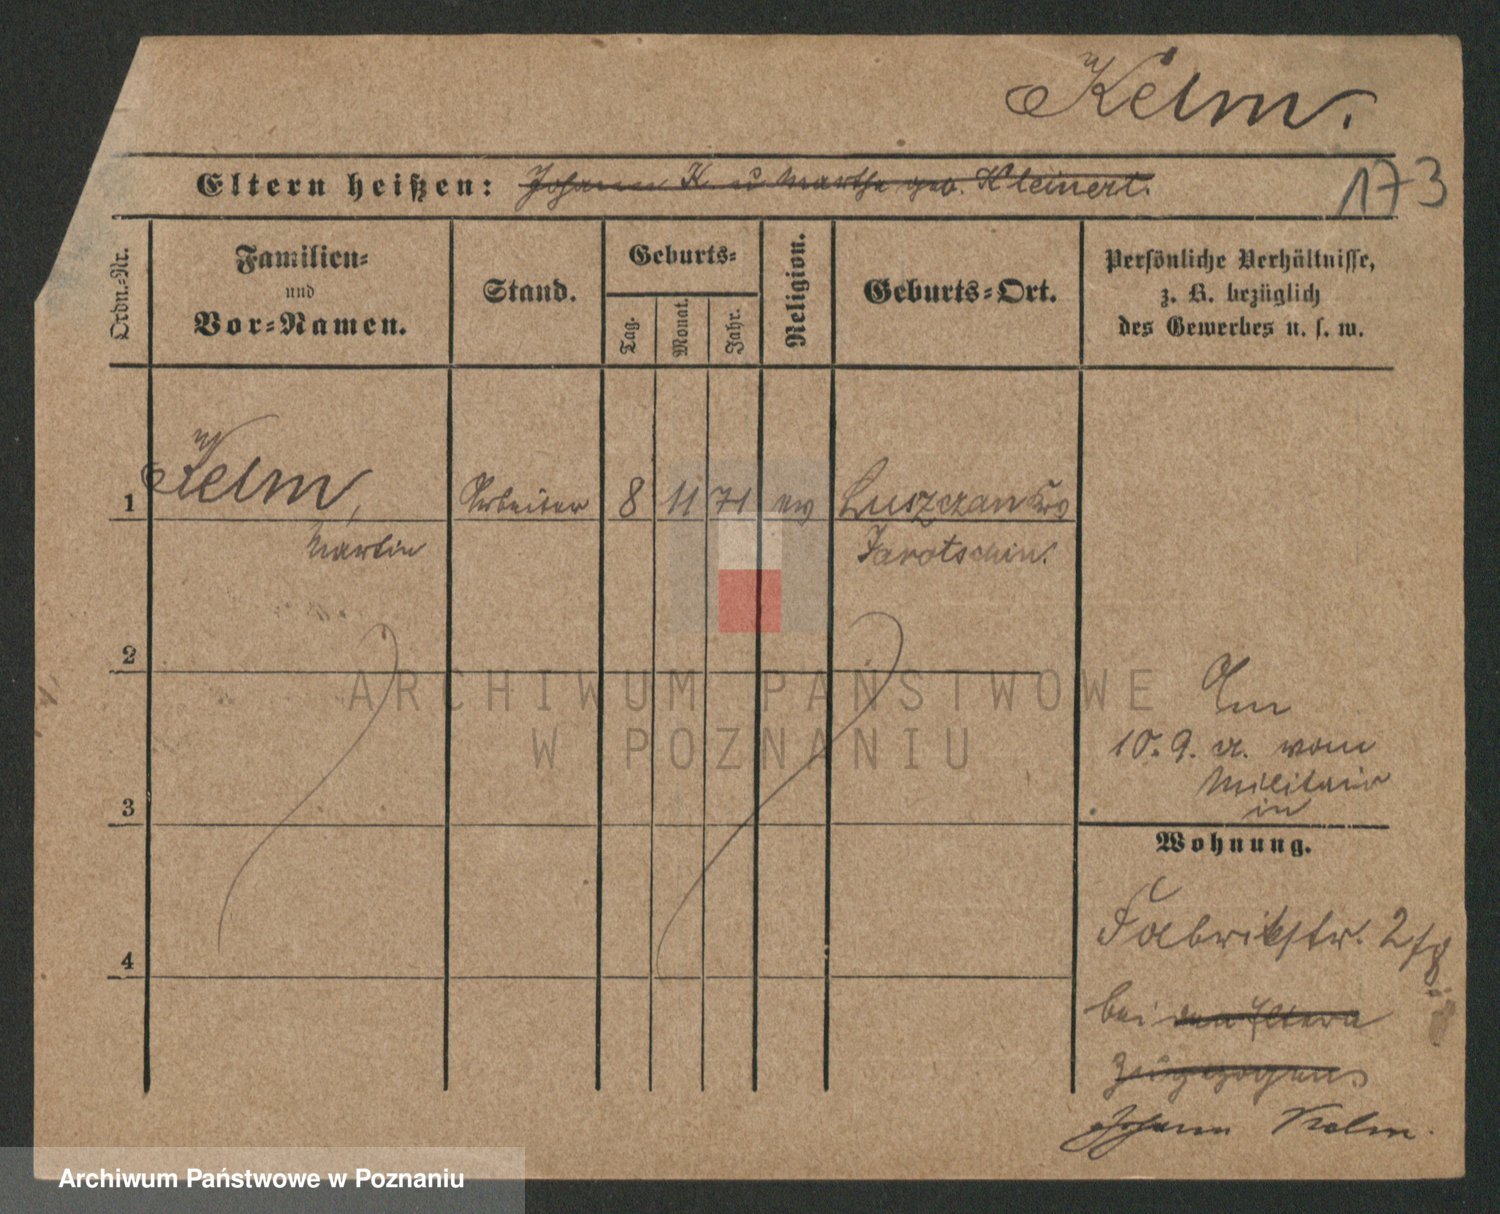 Kelm.
Eltern heißen: Johann K u Martha geb. Kleinert.
173
Ordn.-Nr.
Familien-
und
Vor-Namen.
Stand.
Geburts-
Tag.
Monat.
Jahr.
Religion.
Geburts-Ort.
Persönliche Verhältnisse,
z. B. bezüglich
des Gewerbes u. s. w.
1 Kelm, Arbeiter 8 11 71 ev
Martin Jarotschin.
2
3
4
Am
10. 9. a. vom
Militair
in
Wohnung.
Fabrikstr.
bei den Eltern
Johann Kelm.
ARCHIWUM PAŃSTWOWE
W POZNANIU
Archiwum Państwowe w Poznaniu